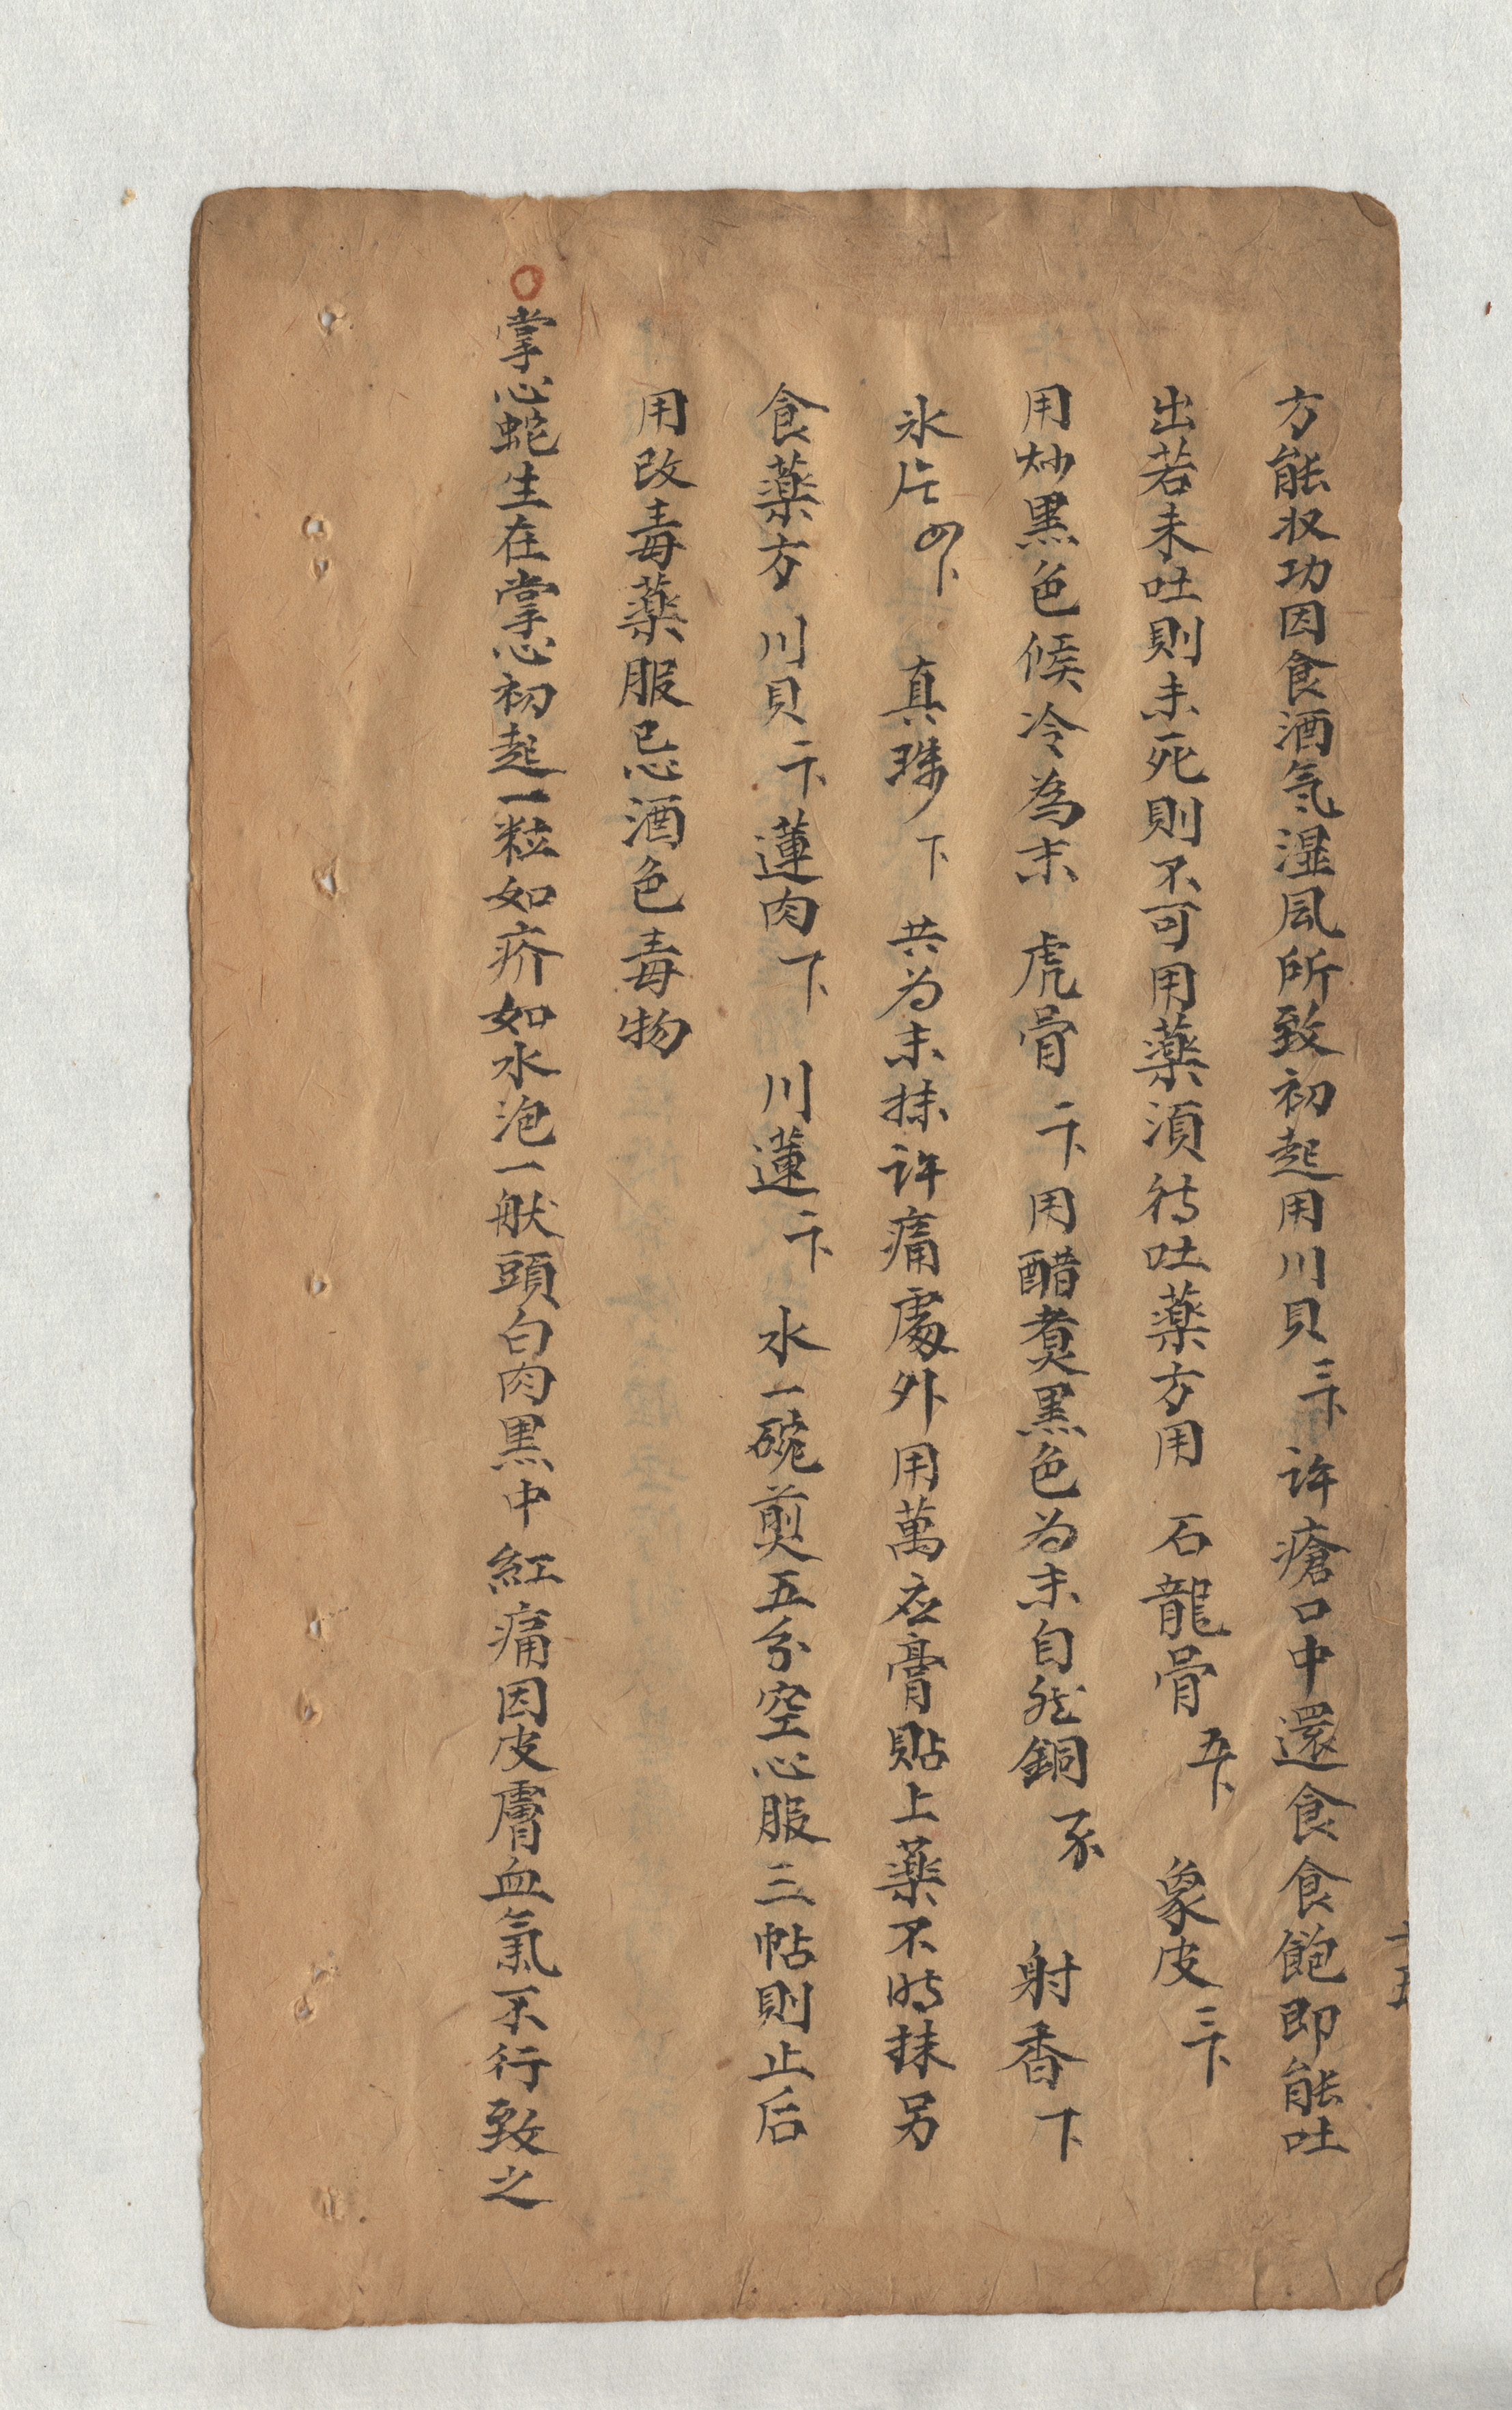 方能収功因食酒気湿風所致初起用川貝三卞許瘡口中還食食飽即能吐
出若未吐則未死則不可用薬湏待吐薬方用石龍骨五卞象皮三卞
用炒黒色候冷為末虎骨二卞用醋煑黒色为末自然銅不射香下
氷片四卞真珠下共为末抹許痛處外用萬応膏貼上薬不时抹另
食薬方川貝二卞蓮肉下川蓮二卞水一碗煎五分空心服三帖則止后
用改毒薬服忌酒色毒物
○掌心蛇生在掌心初起一粒如疥如水泡一般頭白肉黒中紅痛因皮膚血氣不行致之
十五